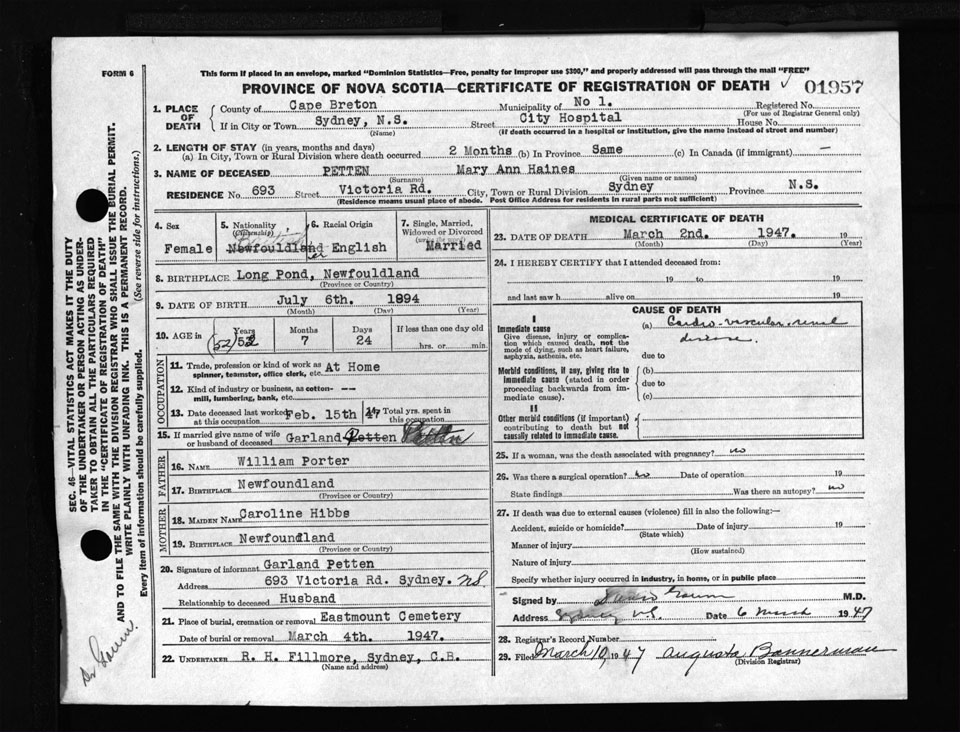 FORM 6
This form if placed in an envelope, marked "Dominion Statistics—Free, penalty for improper use $300," and properly addressed will pass through the mail "FREE"
PROVINCE OF NOVA SCOTIA—CERTIFICATE OF REGISTRATION OF DEATH 01957
1. PLACE OF DEATH
County of Cape Breton Municipality of No 1. Registered No.
(For use of Registrar General only)
If in City or Town Sydney, N.S. Street City Hospital House No.
(Name) (If death occurred in a hospital or institution, give the name instead of street and number)
2. LENGTH OF STAY (in years, months and days)
(a) In City, Town or Rural Division where death occurred 2 Months (b) In Province Same (c) In Canada (if immigrant) —
3. NAME OF DECEASED PETTEN Mary Ann Haines
(Surname) (Given name or names)
RESIDENCE No. 693 Street Victoria Rd. City, Town or Rural Division Sydney Province N.S.
(Residence means usual place of abode. Post Office Address for residents in rural parts not sufficient)
4. Sex Female
5. Nationality (Citizenship) Newfouldland
6. Racial Origin English
7. Single, Married, Widowed or Divorced Married
8. BIRTHPLACE Long Pond, Newfouldland
(Province or Country)
9. DATE OF BIRTH July 6th. 1894
(Month) (Day) (Year)
10. AGE in (52) Years 52 Months 7 Days 24 If less than one day old
hrs. or min.
OCCUPATION
11. Trade, profession or kind of work as spinner, teamster, office clerk, etc. At Home
12. Kind of industry or business, as cotton-mill, lumbering, bank, etc. --
13. Date deceased last worked at this occupation Feb. 15th 47 14. Total yrs. spent in this occupation
15. If married give name of wife or husband of deceased Garland Petten Petten
FATHER
16. NAME William Porter
17. BIRTHPLACE Newfoundland
(Province or Country)
MOTHER
18. MAIDEN NAME Caroline Hibbs
19. BIRTHPLACE Newfoundland
(Province or Country)
20. Signature of informant Garland Petten
Address 693 Victoria Rd. Sydney. NS.
Relationship to deceased Husband
21. Place of burial, cremation or removal Eastmount Cemetery
Date of burial or removal March 4th. 1947.
22. UNDERTAKER R. H. Fillmore, Sydney, C.B.
(Name and address)
MEDICAL CERTIFICATE OF DEATH
23. DATE OF DEATH March 2nd. 1947. 19
(Month) (Day) (Year)
24. I HEREBY CERTIFY that I attended deceased from:
19 to 19
and last saw h alive on 19
CAUSE OF DEATH
I
Immediate cause
Give disease, injury or complication which caused death, not the mode of dying, such as heart failure, asphyxia, asthenia, etc.
(a) Cardio-vascular, renal
disease.
due to
Morbid conditions, if any, giving rise to immediate cause (stated in order proceeding backwards from immediate cause).
(b)
due to
(c)
II
Other morbid conditions (if important) contributing to death but not causally related to immediate cause.
25. If a woman, was the death associated with pregnancy? no
26. Was there a surgical operation? no Date of operation 19
State findings Was there an autopsy? no
27. If death was due to external causes (violence) fill in also the following:—
Accident, suicide or homicide? Date of injury 19
(State which)
Manner of injury
(How sustained)
Nature of injury
Specify whether injury occurred in industry, in home, or in public place
Signed by M.D.
Address Sydney N.S. Date 6 March 1947
28. Registrar's Record Number
29. Filed March 10, 1947 Augusta Bannerman
(Division Registrar)
SEC. 46—VITAL STATISTICS ACT MAKES IT THE DUTY
OF THE UNDERTAKER OR PERSON ACTING AS UNDER-
TAKER TO OBTAIN ALL THE PARTICULARS REQUIRED
IN THE "CERTIFICATE OF REGISTRATION OF DEATH"
AND TO FILE THE SAME WITH THE DIVISION REGISTRAR WHO SHALL ISSUE THE BURIAL PERMIT.
WRITE PLAINLY WITH UNFADING INK. THIS IS A PERMANENT RECORD.
Every item of information should be carefully supplied. (See reverse side for instructions.)